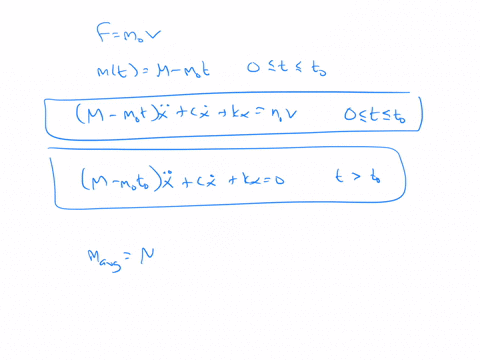 F = m₀v
m(t) = M - m₀t    0 ≤ t ≤ t₀
(M - m₀t)ẍ + cẋ + kx = m₀v    0 ≤ t ≤ t₀
(M - m₀t₀)ẍ + cẋ + kx = 0    t > t₀
m_avg =